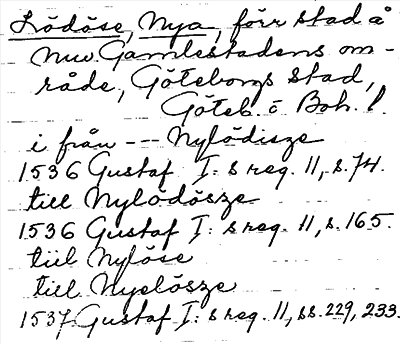 Lödöse, Nya, förr stad å
nuv. Gamlestadens om-
råde, Göteborgs stad,
Göteb. o Boh. l.
i från --- Nylödisze
1536 Gustaf I:s reg. 11, s. 74.
till Nylödösze
1536 Gustaf I:s reg. 11, s. 165.
till Nylöse
till Nyelösze
1537 Gustaf I:s reg. 11, ss. 229, 233.